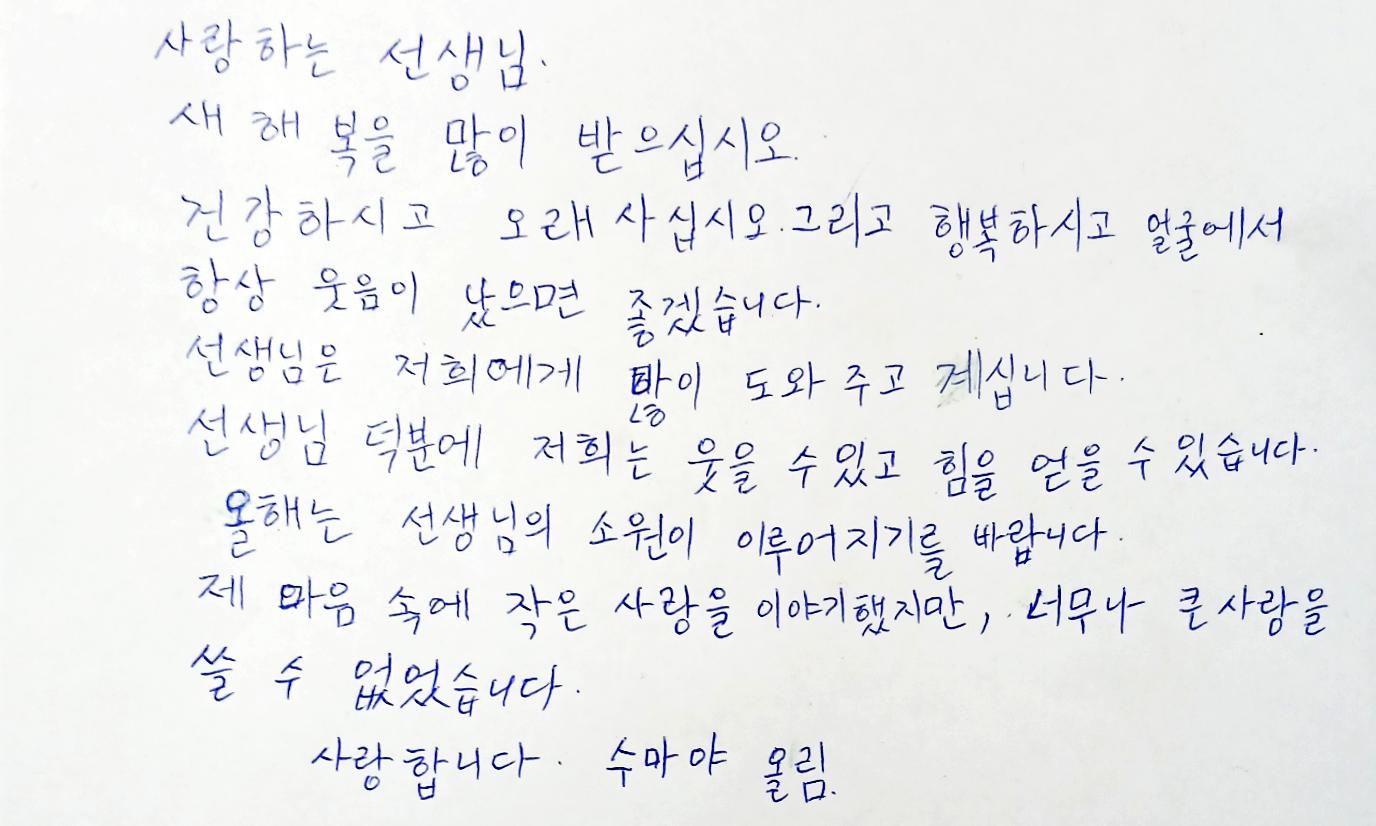 사랑하는 선생님.
새해 복을 많이 받으십시오.
건강하시고 오래 사십시오. 그리고 행복하시고 얼굴에서
항상 웃음이 났으면 좋겠습니다.
선생님은 저희에게 많이 도와 주고 계십니다.
선생님 덕분에 저희는 웃을 수 있고 힘을 얻을 수 있습니다.
올해는 선생님의 소원이 이루어지기를 바랍니다.
제 마음 속에 작은 사랑을 이야기했지만, 너무나 큰 사랑을
쓸 수 없었습니다.
사랑합니다. 수마야 올림.